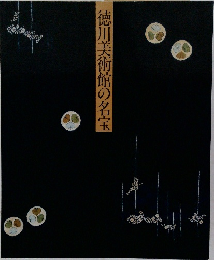 徳川美術館の名宝